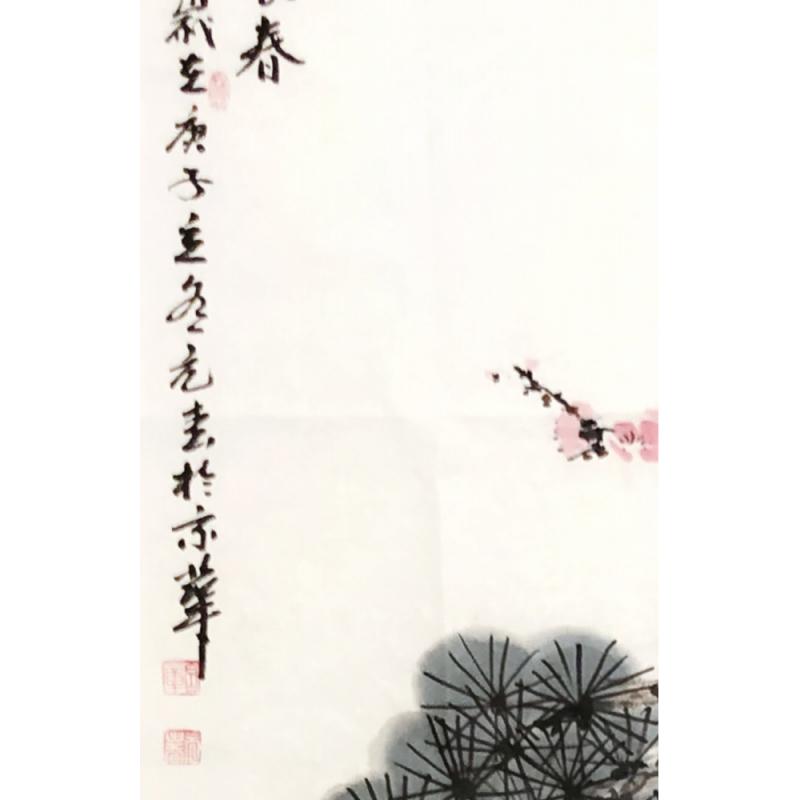 春
歲在庚子立冬書於京華